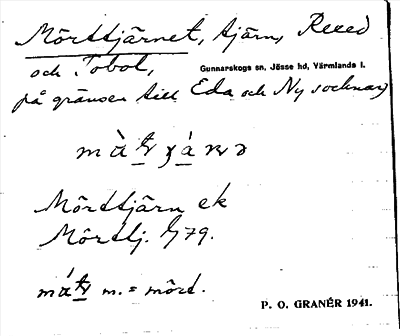 Mörttjärnet, tjärn, Reeed
och Tobol,
Gunnarskogs sn, Jösse hd, Värmlands l.
på gränsen till Eda och Ny socknar
Mörttjärn ek
Mörttj. 79.
m. = mört.
P. O. GRANÉR 1941.